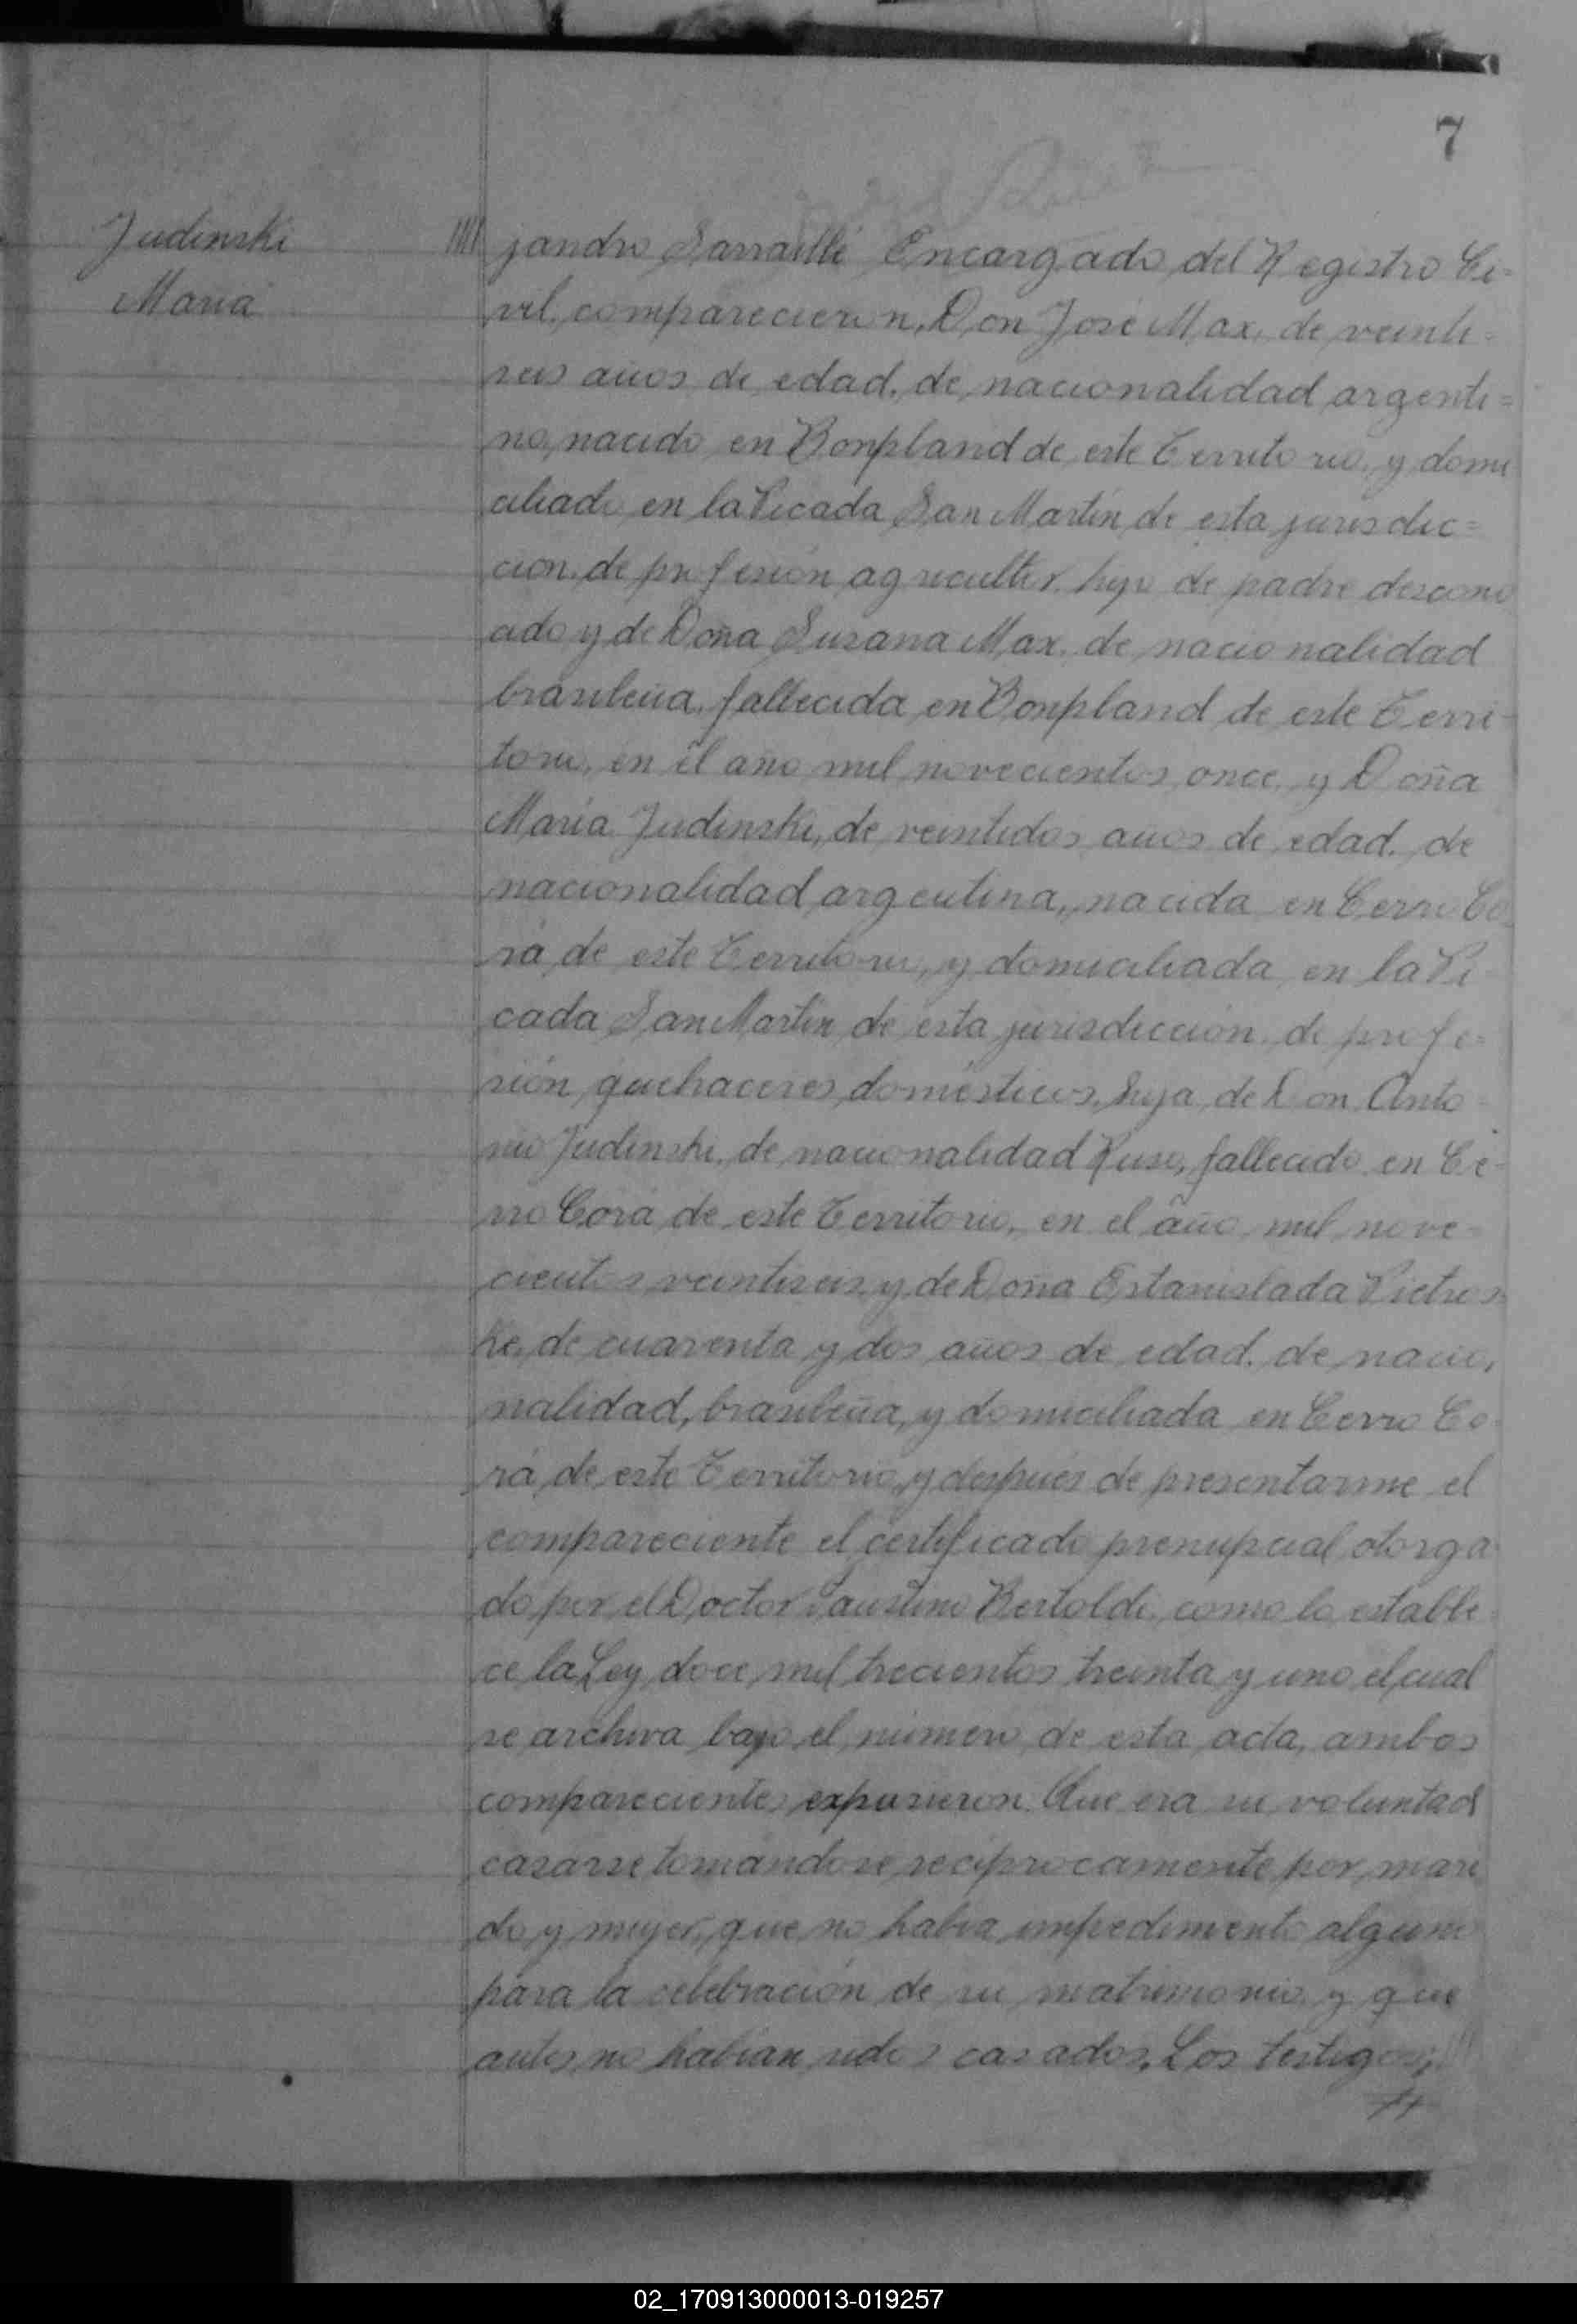 7
Judinski
Maria
jandro Sarraillé Encargado del Registro Ci-
vil, comparecieron, Don José Max, de veinti-
seis años de edad, de nacionalidad argenti=
no, nacido en Bonpland de este Territorio, y domi
ciliado en la Picada San Martín de esta jurisdic=
cion, de profesión agricultor, hijo de padre descono
cido y de Doña Susana Max, de nacionalidad
brasileña, fallecida en Bonpland de este Terri-
torio, en el año mil novecientos once, y Doña
María Judinski, de veintidos años de edad, de
nacionalidad argentina, nacida en Cerro Co
rá, de este Territorio, y domiciliada en la Pi
cada San Martín de esta jurisdicción, de profe=
sión quehaceres domésticos, hija de Don Anto-
nio Judinski, de nacionalidad Ruso, fallecido en Ce-
rro Corá de este Territorio, en el año mil nove-
cientos veintiseis, y de Doña Estanislada Pietros
ke, de cuarenta y dos años de edad, de nacio,
nalidad, brasileña, y domiciliada en Cerro Co
rá, de este Territorio, y después de presentarme el
compareciente el certificado prenupcial otorga
do por el Doctor Faustino Bertoldi, como lo estable
ce la Ley doce mil trecientos treinta y uno el cual
se archiva bajo el número de esta acta, ambos
comparecientes expusieron. Que era su voluntad
casarse tomándose recíprocamente por mari
do y mujer, que no había impedimento alguno
para la celebración de su matrimonio, y que
antes no habían sidos casados. Los testigos;
02_170913000013-019257